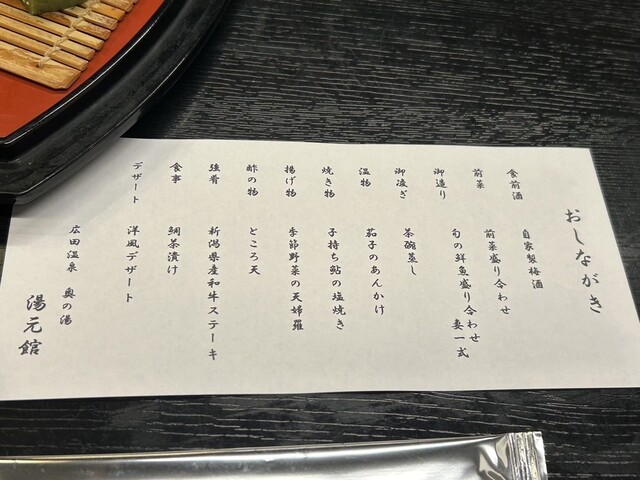 おしながき
食前酒　自家製梅酒
前菜　前菜盛り合わせ
御造り　旬の鮮魚盛り合わせ　妻一式
御凌ぎ　茶碗蒸し
温物　茄子のあんかけ
焼き物　子持ち鮎の塩焼き
揚げ物　季節野菜の天婦羅
酢の物　ところ天
強肴　新潟県産和牛ステーキ
食事　鯛茶漬け
デザート　洋風デザート
広田温泉　奥の湯
湯元館